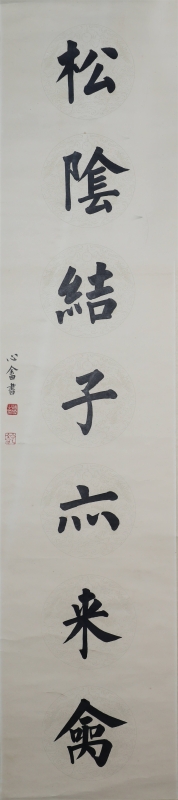 松陰結子亦来禽
心畬書